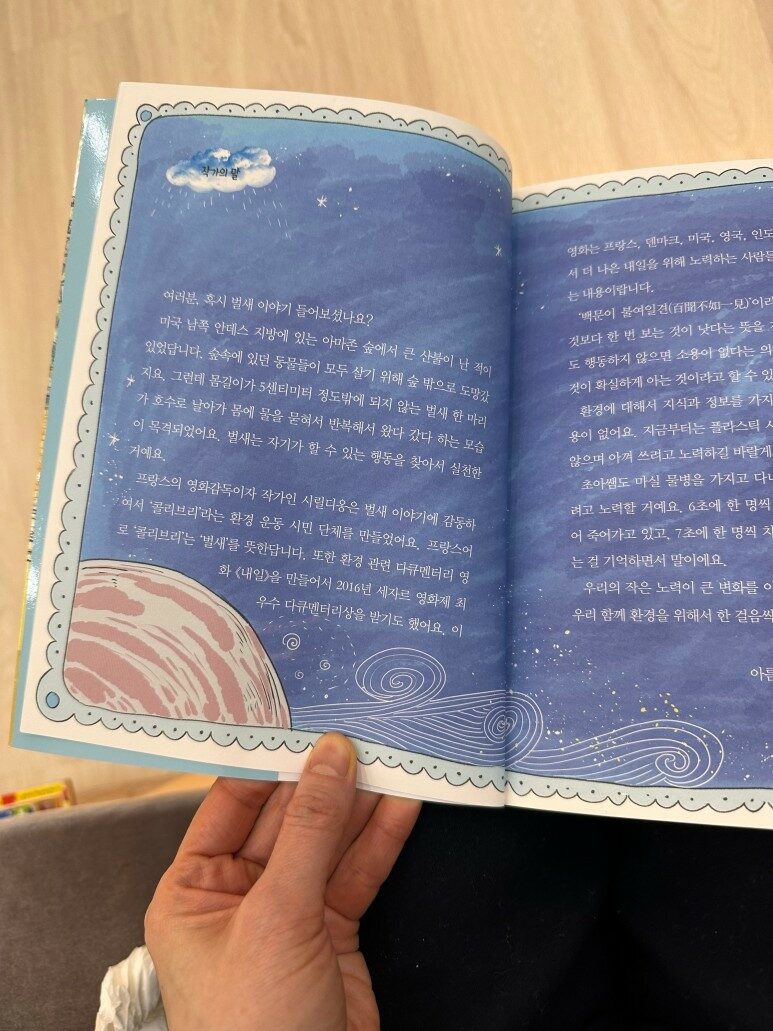 작가의 말
여러분, 혹시 벌새 이야기 들어보셨나요?
미국 남쪽 안데스 지방에 있는 아마존 숲에서 큰 산불이 난 적이
있었답니다. 숲속에 있던 동물들이 모두 살기 위해 숲 밖으로 도망갔
지요. 그런데 몸길이가 5센티미터 정도밖에 되지 않는 벌새 한 마리
가 호수로 날아가 몸에 물을 묻혀서 반복해서 왔다 갔다 하는 모습
이 목격되었어요. 벌새는 자기가 할 수 있는 행동을 찾아서 실천한
거예요.
프랑스의 영화감독이자 작가인 시릴디옹은 벌새 이야기에 감동하
여서 ‘콜리브리’라는 환경 운동 시민 단체를 만들었어요. 프랑스어
로 ‘콜리브리’는 ‘벌새’를 뜻한답니다. 또한 환경 관련 다큐멘터리 영
화 《내일》을 만들어서 2016년 세자르 영화제 최
우수 다큐멘터리상을 받기도 했어요. 이
영화는 프랑스, 덴마크, 미국, 영국, 인도
서 더 나은 내일을 위해 노력하는 사람들
는 내용이랍니다.
‘백문이 불여일견(百聞不如一見)’이라
것보다 한 번 보는 것이 낫다는 뜻을
도 행동하지 않으면 소용이 없다는 의
것이 확실하게 아는 것이라고 할 수 있
환경에 대해서 지식과 정보를 가지
용이 없어요. 지금부터는 플라스틱 사
않으며 아껴 쓰려고 노력하길 바랄게
초아쌤도 마실 물병을 가지고 다니
려고 노력할 거예요. 6초에 한 명씩
어 죽어가고 있고, 7초에 한 명씩 차
는 걸 기억하면서 말이에요.
우리의 작은 노력이 큰 변화를 이
우리 함께 환경을 위해서 한 걸음씩
아름